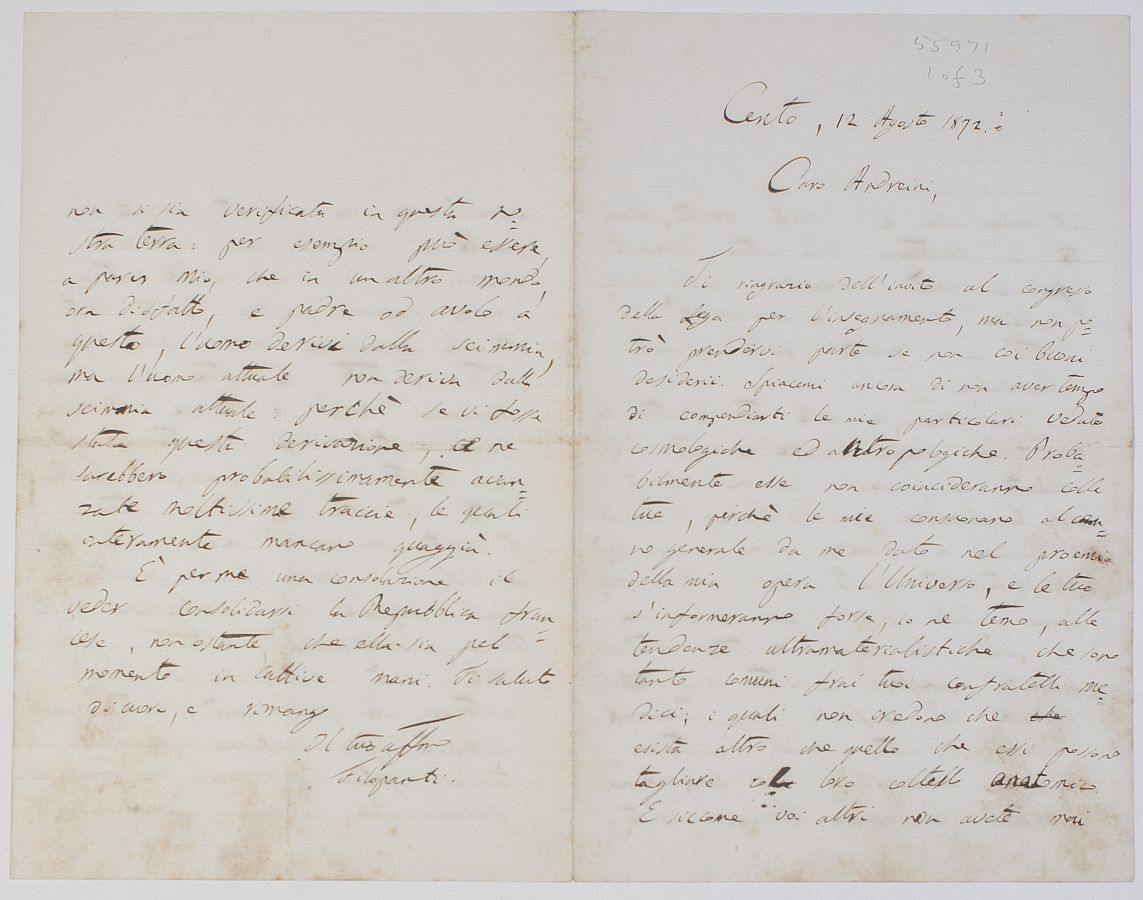 55971
1 of 3
Cento, 12 Agosto 1872.
Caro Andreini,
Ti ringrazio dell'invito al congresso
della Lega per l'insegnamento, ma non po=
trò prendervi parte se non coi buoni
desiderii. Spiacemi ancora di non aver tempo
di compendiarti le mie particolari vedute
cosmologiche ed antropologiche. Proba=
bilmente esse non coincideranno colle
tue, perchè le mie consuonano al cen=
no generale da me dato nel proemio
della mia opera l'Universo, e le tue
s'informeranno forse, io ne temo, alle
tendenze ultramaterialistiche che sono
tanto comuni frai tuoi confratelli me=
dici; i quali non credono che che
esista altro che quello che essi possono
tagliare col loro coltello anatomico.
E siccome voi altri non avete mai
non si sia verificata in questa no=
stra terra: per esempio può essere,
a parer mio, che in un altro mondo,
ora disfatto, e padre od avolo a
questo, l'uomo derivi dalla scimmia,
ma l'uomo attuale non deriva dalla
scimmia attuale: perchè se vi fosse
stata questa derivazione, ce ne
sarebbero probabilissimamente avan=
zate moltissime traccie, le quali
interamente mancano quaggiù.
È per me una consolazione il
veder consolidarsi la Repubblica fran=
cese, non ostante che ella sia pel
momento in cattive mani. Ti saluto
di cuore, e rimango
Il tuo affmo
Filopanti.